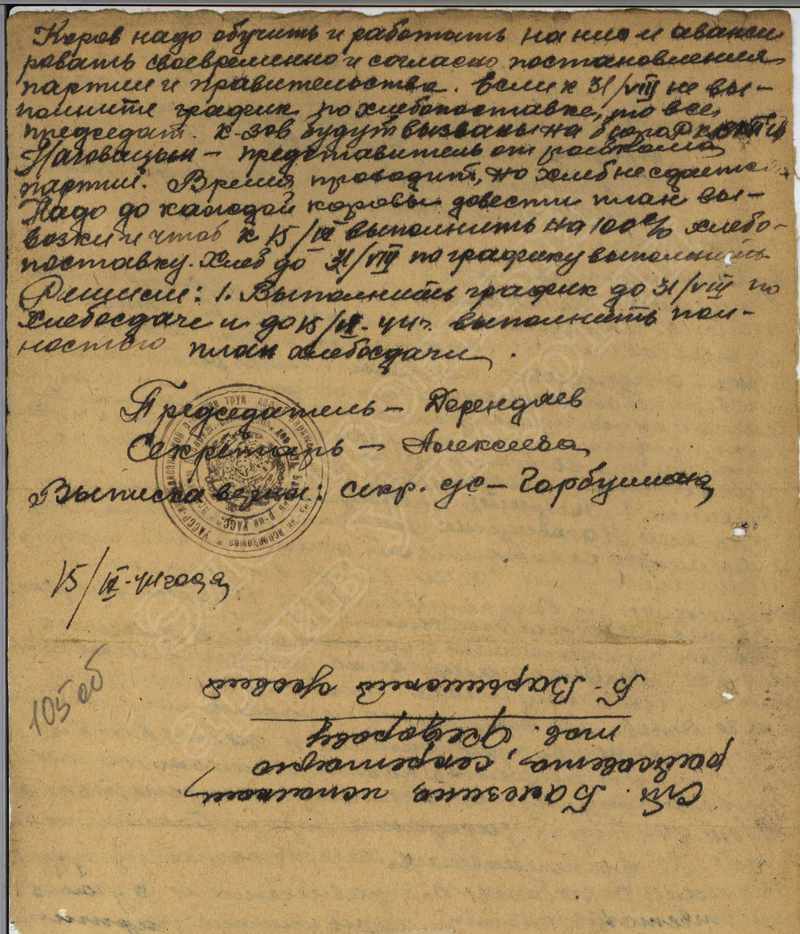 Коров надо обучить и работать на них и аванси
ровать своевременно и согласно постановления
партии и правительства. Если к 31/VIII не вы-
полните график по хлебопоставке, то все
председат. к-зов будут вызваны на бюро РК ВКП(б)
Наговицын – представитель от райкома
партии. Время проводит, но хлеб не сдаете.
Надо до каждой коровы довести план вы-
возки и чтоб к 15/IX выполнить на 100% хлебо-
поставку. Хлеб до 31/VIII по графику выполнить
Решили: 1. Выполнить график до 31/VIII по
хлебосдаче и до 15/IX-41г. выполнить пол-
ностью план хлебосдачи.
Председатель – Дерендяев
Секретарь – Алексеева
Выписка верна: секр. с/с – Горбушина
15/IX-41 года
105 об
ст. Балезино, исполком
райсовета, секретарю
тов. Федорову
Б-Варыжский с/совет